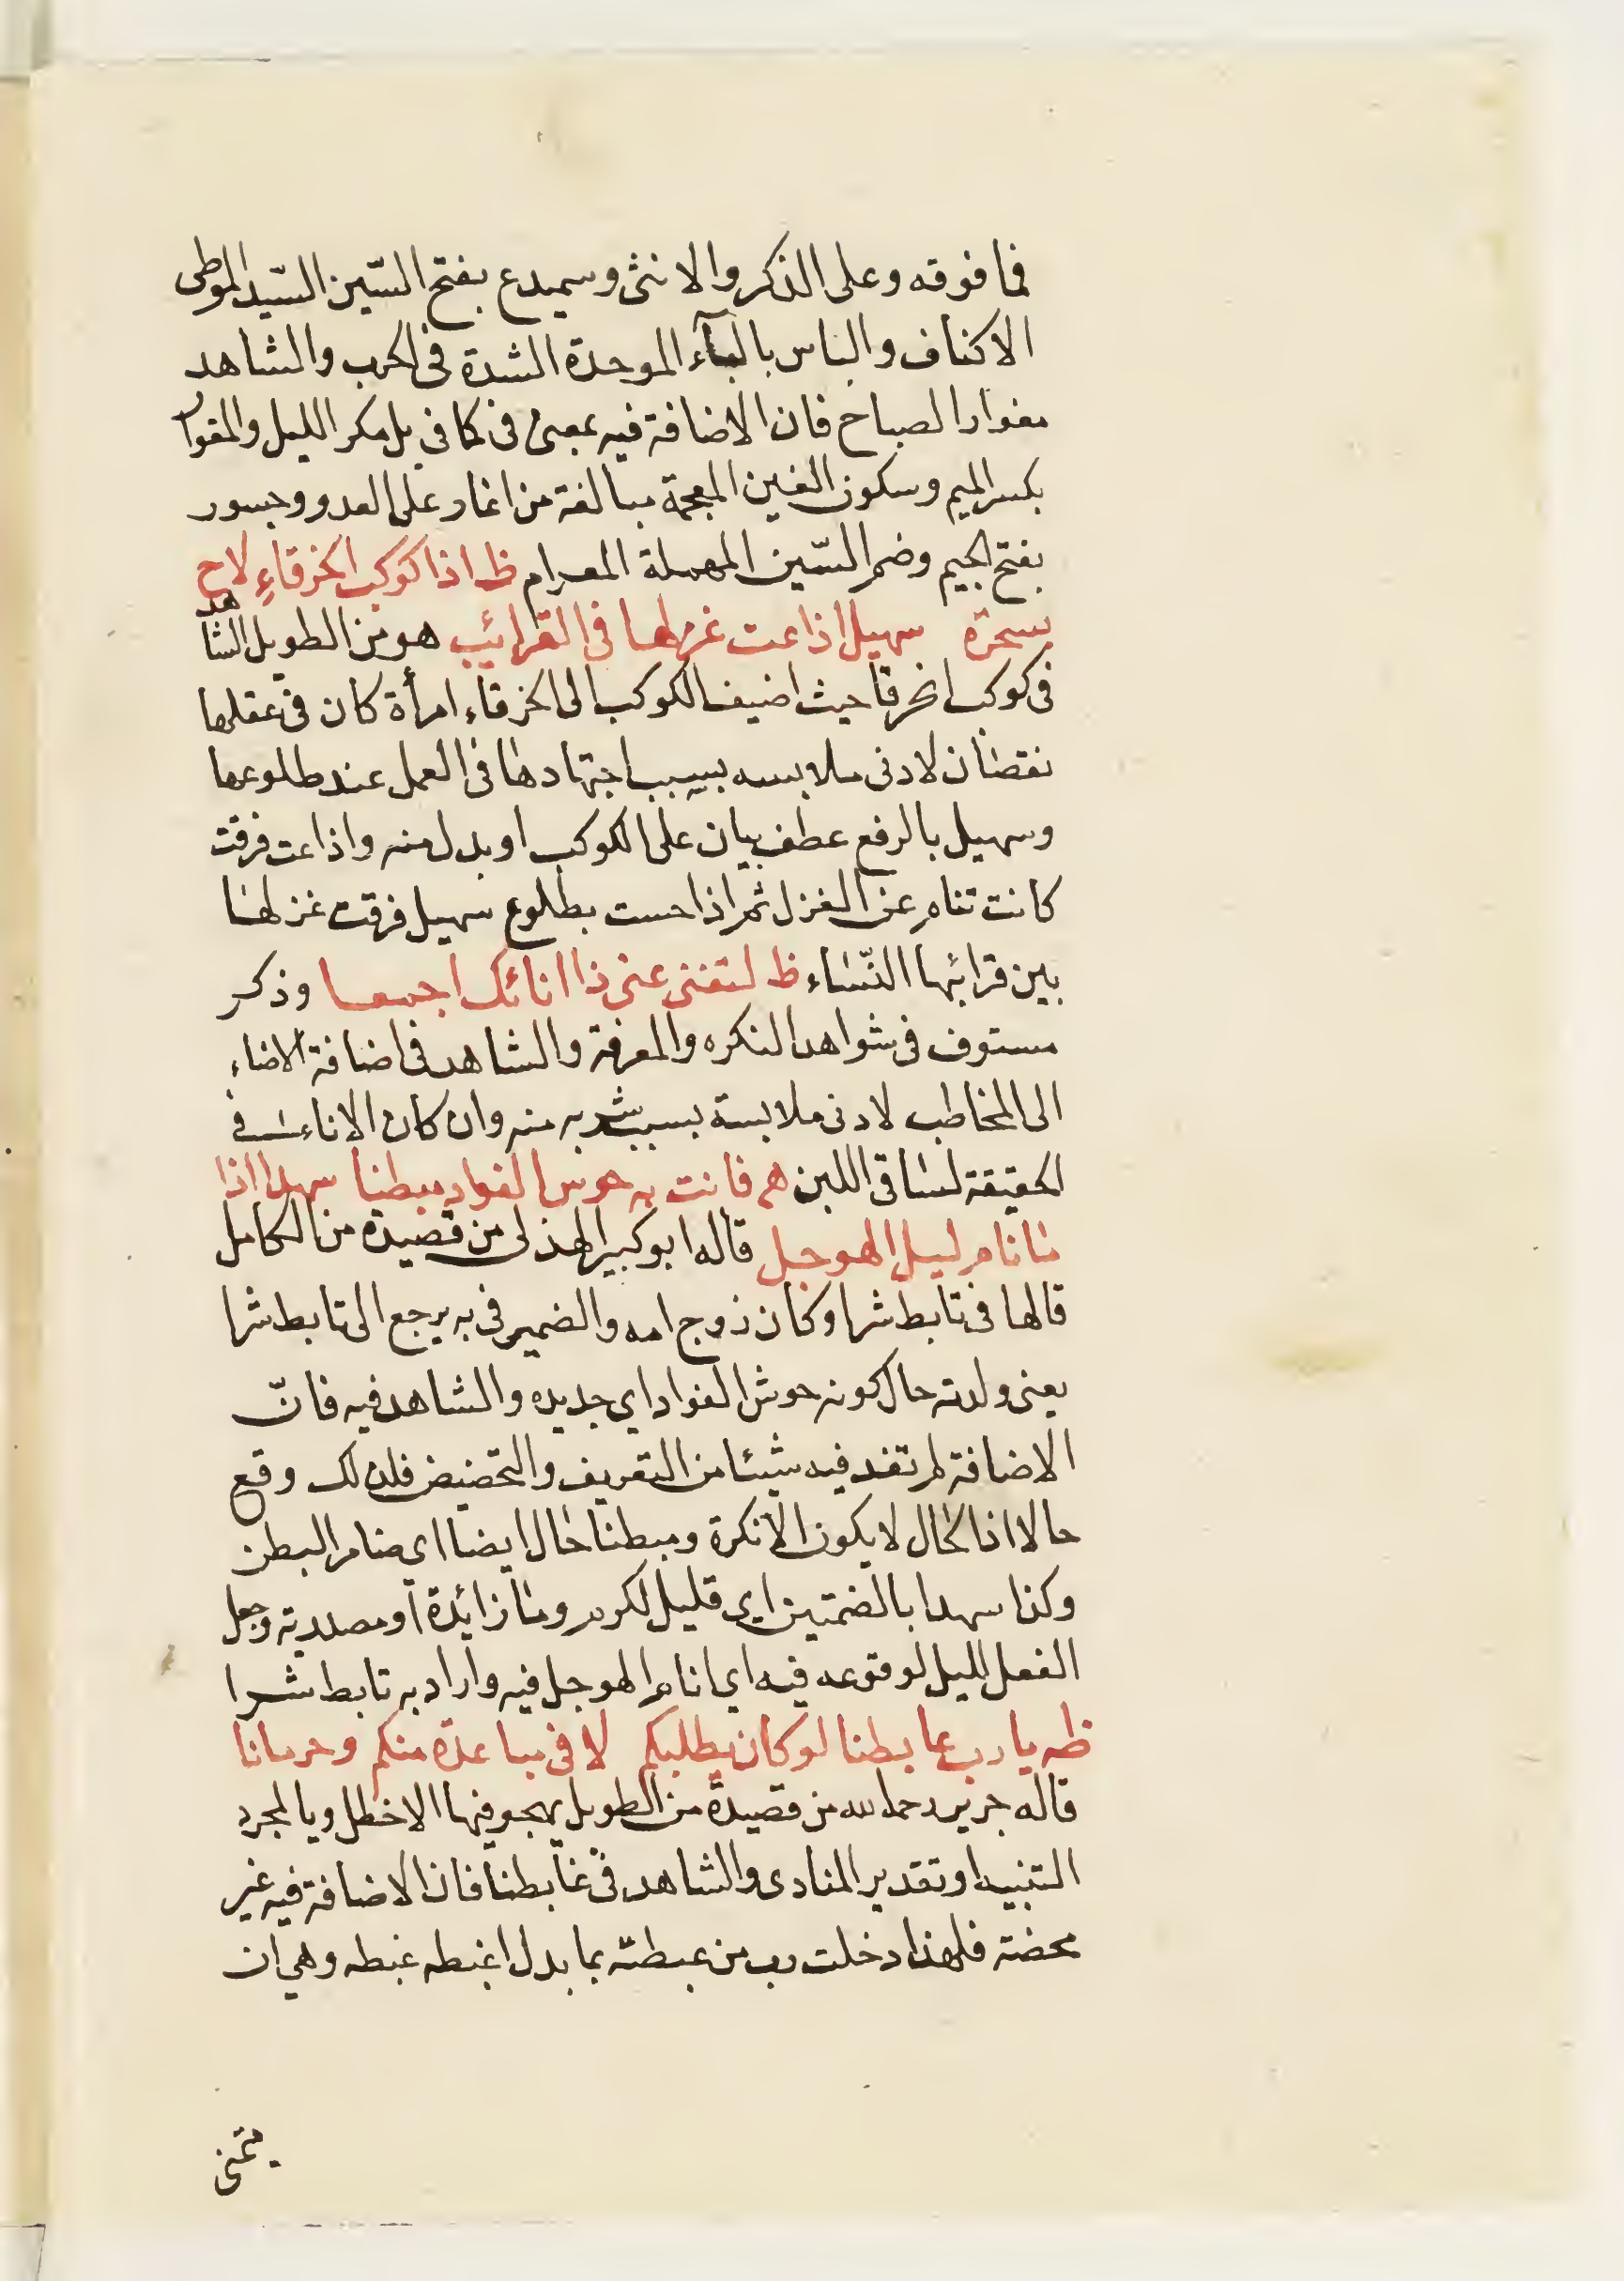 فما فوقه وعلى الذكر والانثى وسميدع بفتح السّين السّيد الموطى
الاكناف والباس بالبآء الموحدة الشدة فى الحرب والشاهد
مغوار الصباح فان الاضافة فيه بمعنى فى كما في بل مكر الليل والمغوار
بكسر الميم وسكون الغين المعجمة مبالغة من اغار على العدو وجسور
بفتح الجيم وضم السّين المهملة المعدام ظ اذا كوكب الخرقاءِ لاح
بسحرة سهيل اذاعت غزلها فى القرائب هو من الطويل الشاهد
فى كوكب الخرقا حيث اضيف الكوكب الى الخرقاء امرأة كان فى عقلها
نقصان لادنى ملابسه بسبب اجتهادها فى العمل عند طلوعها
وسهيل بالرفع عطف بيان على الكوكب او بدل منه واذاعت فرقت
كانت تنام عن الغزل ثم اذا حست بطلوع سهيل فرقت غزلها
بين قرائبها النّساء ظ لتغنى عنى ذا انائك اجمعا وذكر
مستوف فى شواهد النكره والمعرفة والشاهد فى اضافة الاناء
الى المخاطب لادنى ملابسة بسبب شربه منه وان كان الاناء فى
الحقيقة لساقى اللبن هم فانت به حوس الفواد مبطنا سهدا اذا
ما نام ليل الهوجل قاله ابو كبير الهذلى من قصيدة من الكامل
قالها فى تابط شرا وكان زوج امه والضمير فى به يرجع الى تابط شرا
يعنى ولدته حال كونه حوش الفواد اى جديده والشاهد فيه فانّ
الاضافة لم تفد فيه شيئا من التعريف والتخصيص فلذلك وقع
حالا اذا لحال لا يكون الا نكرة ومبطنا حال ايضا اى ضامر البطن
وكذا سهدا بالضمتين اى قليل الكرم وما زائدة او مصدرية وجعل
الفعل لليل لوقوعه فيه اى انام الهوجل فيه واراد به تابط شرا
ظه يا رب غابطنا لو كان يطلبكم لاقى مباعدة منكم وحرمانا
قاله جرير رحمه الله من قصيدة من الطويل يهجو فيها الاخطل ويا لمجرد
التنبيه او تقدير المنادى والشاهد فى غابطنا فان الاضافة فيه غير
محضة فلهذا دخلت رب من غبطته بما بدل اغبطه غبطه وهى ان
يتمنى